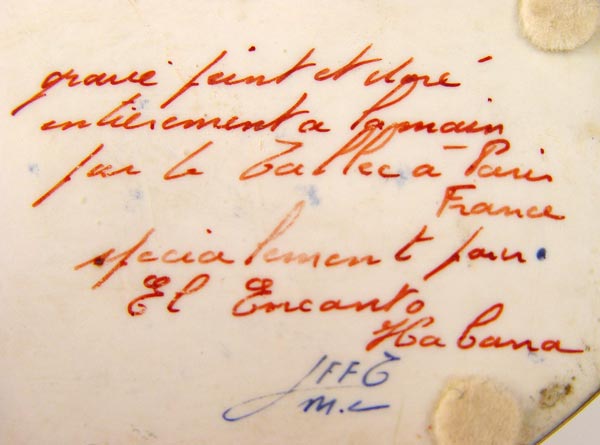 gravé peint et doré
entièrement a la main
par le Tallec à Paris
France
specialement pour
El Encanto
Habana
FFT
m.c